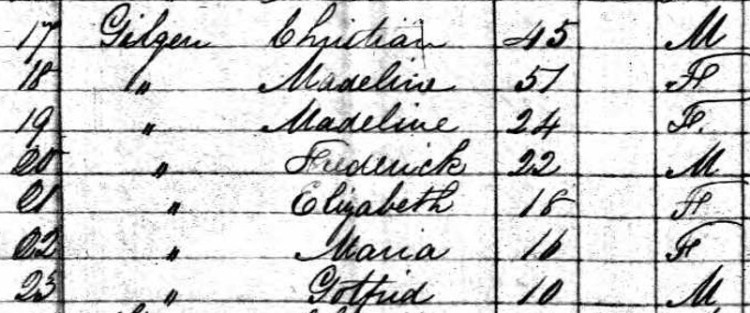 17 Gilgen Christian 45 M
18 " Madeline 51 F
19 " Madeline 24 F.
20 " Frederick 22 M
21 " Elizabeth 18 F
22 " Maria 16 F
23 " Gotfrid 10 M